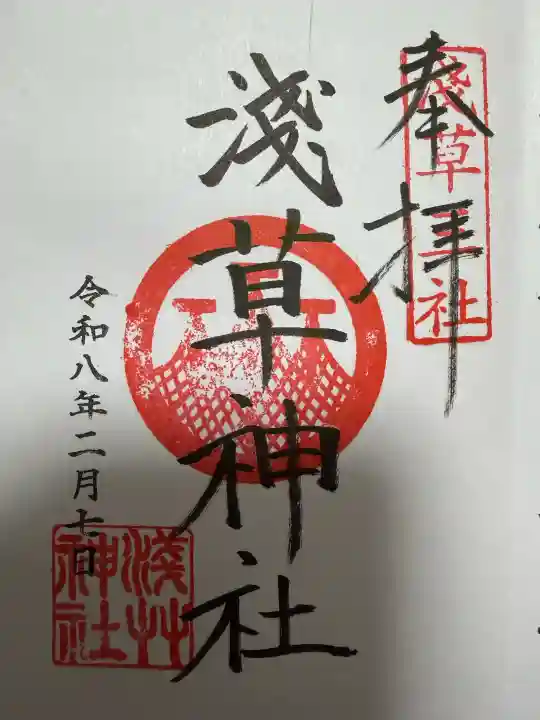 奉拝
淺草三社
淺草神社
令和八年二月七日
淺草神社